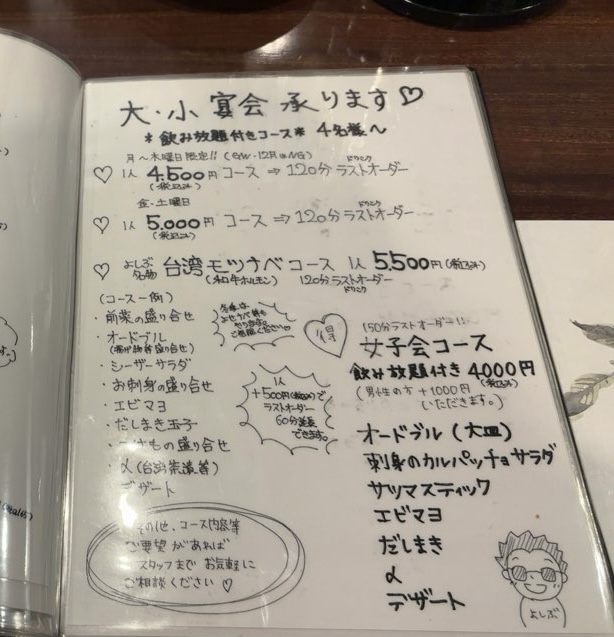 大・小 宴会 承ります♡
*飲み放題付きコース* 4名様〜
月〜木曜日限定!!
♡ 1人 4.500円コース ⇒ 120分ラストオーダー
ドリンク
(税込み)
金・土曜日
♡ 1人 5.000円コース ⇒ 120分ラストオーダー
ドリンク
(税込み)
♡ よしぶ名物 台湾モツナベコース 1人 5.500円(税込み)
(和牛ホルモン) 120分ラストオーダー
ドリンク
(コース一例)
・前菜の盛り合せ
・オードブル
・シーザーサラダ
・お刺身の盛り合せ
・エビマヨ
・だしまき玉子
・の盛り合せ
・α
デザート
1人
+500円(税込み)で
ラストオーダー
60分延長
できます。
その他、コース内容等
ご要望があれば
スタッフまで お気軽に
ご相談ください♡
150分ラストオーダー!!
女子会コース
飲み放題付き 4000円
(税込み)
(男性の方 +1000円
いただきます。)
オードブル(大皿)
刺身のカルパッチョサラダ
サツマスティック
エビマヨ
だしまき
α
デザート
よしぶ